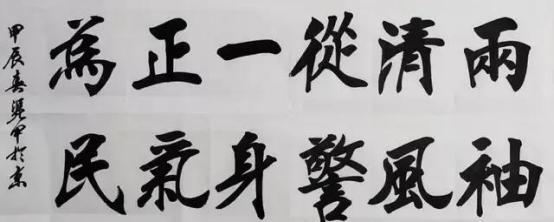 兩袖
清風
從警
一身
正氣
為民
甲辰春甲於京